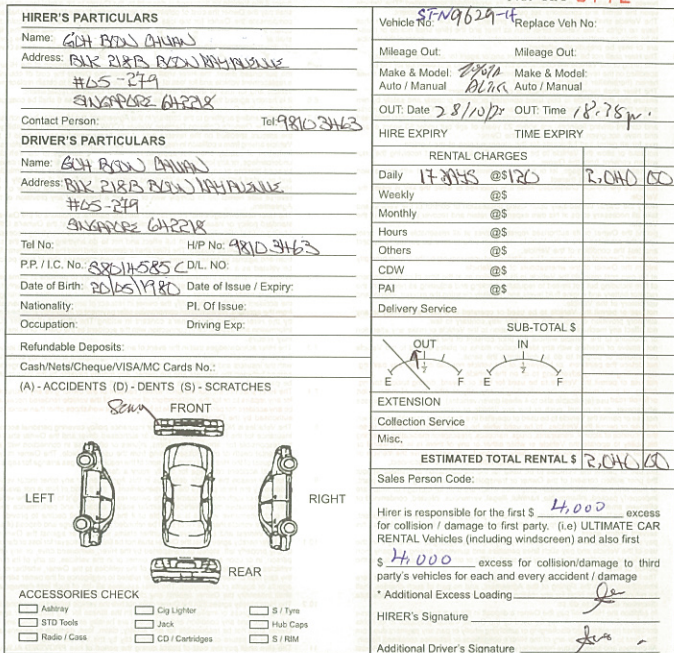 HIRER'S PARTICULARS
Name: GOH BOON CHUAN
Address: BLK 218B BOON LAY AVENUE
#05-279
SINGAPORE 642218
Contact Person: Tel: 9810 3463
DRIVER'S PARTICULARS
Name: GOH BOON CHUAN
Address: BLK 218B BOON LAY AVENUE
#05-279
SINGAPORE 642218
Tel No: H/P No: 9810 3463
P.P. / I.C. No. S8014585C D/L. NO:
Date of Birth: 20/05/1980 Date of Issue / Expiry:
Nationality: Pl. Of Issue:
Occupation: Driving Exp:
Refundable Deposits:
Cash/Nets/Cheque/VISA/MC Cards No.:
(A) - ACCIDENTS (D) - DENTS (S) - SCRATCHES
FRONT
LEFT
RIGHT
REAR
ACCESSORIES CHECK
Ashtray Cig Lighter S / Tyre
STD Tools Jack Hub Caps
Radio / Cass CD / Cartridges S / RIM
Vehicle No: 9629-H Replace Veh No:
Mileage Out: Mileage Out:
Make & Model: TOYOTA Make & Model:
Auto / Manual ALTIS Auto / Manual
OUT: Date 28/10/ OUT: Time 18.38
HIRE EXPIRY TIME EXPIRY
RENTAL CHARGES
Daily 17 DAYS @$120 2,040 00
Weekly @$
Monthly @$
Hours @$
Others @$
CDW @$
PAI @$
Delivery Service
SUB-TOTAL $
OUT IN
E 1/2 F E 1/2 F
EXTENSION
Collection Service
Misc.
ESTIMATED TOTAL RENTAL $ 2,040 00
Sales Person Code:
Hirer is responsible for the first $ 4,000 excess
for collision / damage to first party. (i.e) ULTIMATE CAR
RENTAL Vehicles (including windscreen) and also first
$ 4,000 excess for collision/damage to third
party's vehicles for each and every accident / damage
* Additional Excess Loading
HIRER's Signature
Additional Driver's Signature